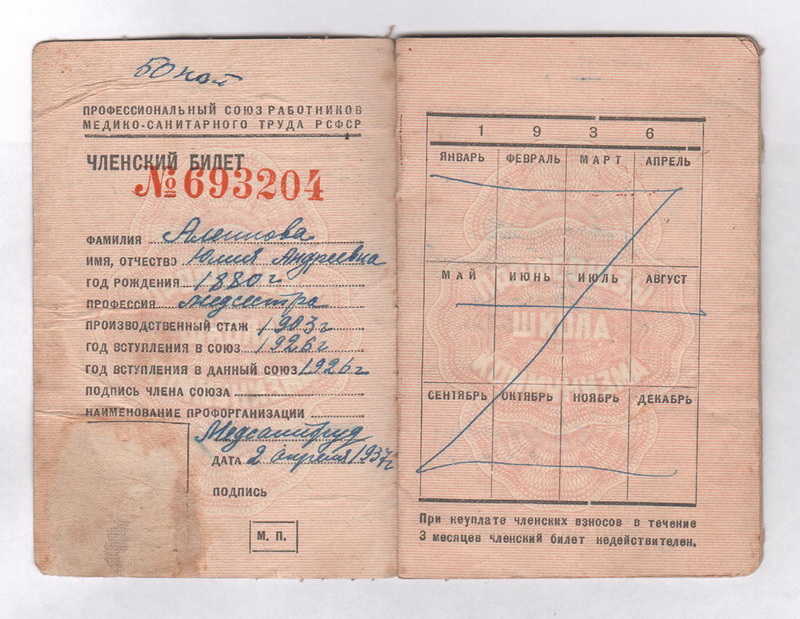 50 коп
ПРОФЕССИОНАЛЬНЫЙ СОЮЗ РАБОТНИКОВ
МЕДИКО-САНИТАРНОГО ТРУДА РСФСР
ЧЛЕНСКИЙ БИЛЕТ
№ 693204
ФАМИЛИЯ
ИМЯ, ОТЧЕСТВО Юлия Андреевна
ГОД РОЖДЕНИЯ 1880 г
ПРОФЕССИЯ медсестра
ПРОИЗВОДСТВЕННЫЙ СТАЖ 1903 г
ГОД ВСТУПЛЕНИЯ В СОЮЗ 1926 г
ГОД ВСТУПЛЕНИЯ В ДАННЫЙ СОЮЗ 1926 г
ПОДПИСЬ ЧЛЕНА СОЮЗА
НАИМЕНОВАНИЕ ПРОФОРГАНИЗАЦИИ
Медсантруд
ДАТА 2 апреля 1937 г
ПОДПИСЬ
М. П.
1 9 3 6
ЯНВАРЬ ФЕВРАЛЬ МАРТ АПРЕЛЬ
МАЙ ИЮНЬ ИЮЛЬ АВГУСТ
СЕНТЯБРЬ ОКТЯБРЬ НОЯБРЬ ДЕКАБРЬ
ШКОЛА
КОММУНИЗМА
При неуплате членских взносов в течение
3 месяцев членский билет недействителен.